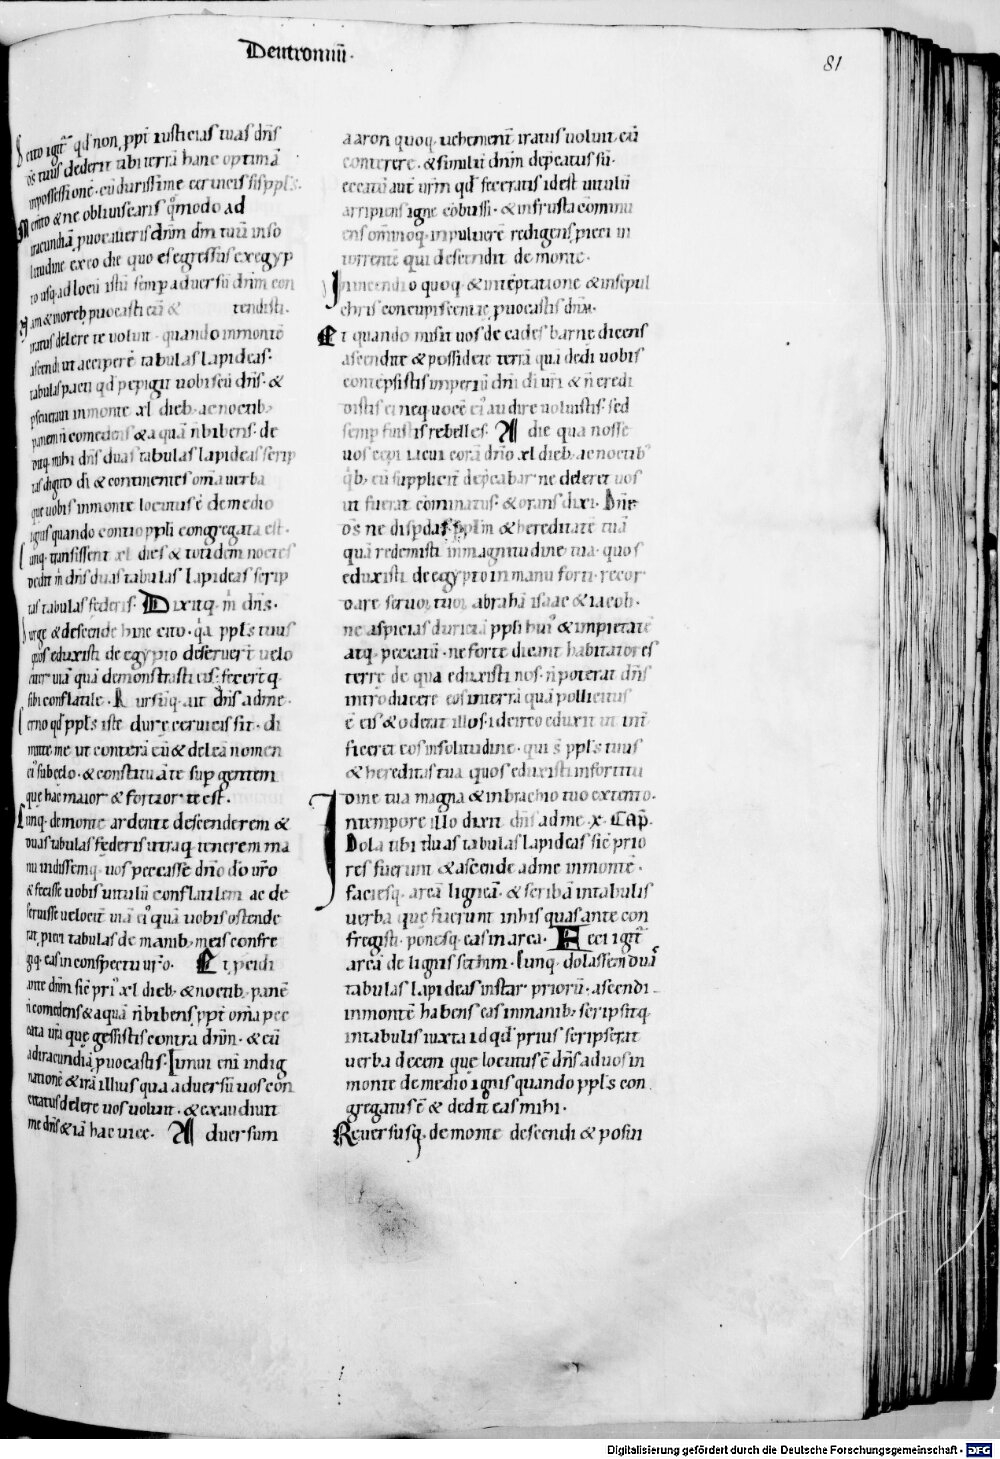 Deutronomiū·
81
Scito igit᷑ qd' non ꝓpt̄ iusticias tuas dn̄s
ds̄ tuus dederit tibi terrā hanc optimā
inpossessionē· cū durissime ceruicis sis ppl's·
Memto & ne obliuiscaris qͦmodo ad
iracundiā ꝓuocaueris dn̄m dm̄ tuū inso
litudine· ex eo die quo es egressus ex egyp
to usq· ad locū istū semp aduersū dn̄m con
am & in oreb ꝓuocasti eū & tendisti·
iratus delere te uoluit· quando in monte
ascendi ut acciperē tabulas lapideas·
tabulas pacti qd' pepigit uobiscū dn̄s· &
pseueraui in monte xl dieb· ac noctib·
panem n̄ comedens & aquā n̄ bibens· de
ditq· mihi dn̄s duas tabulas lapideas scrip
tas digito dī & continentes om̄a uerba
que uobis in monte locutus ē de medio
ignis quando contio ppli congregata est·
Cumq· transissent xl dies & totidem noctes
dedit m̄ dn̄s duas tabulas lapideas scrip
tas tabulas federis· Dixitq· m̄ dn̄s·
Surge & descende hinc cito· qa ppl's tuus
quos eduxisti de egypto deseruert uelo
citer uiā quā demonstrasti eis· fecertq·
sibi conflatile· Rursūq· ait dn̄s ad me·
Cerno qd' ppl's iste dure ceruicis sit· di
mitte me ut conterā eū & deleā nomen
ei' sub celo· & constituā te sup gentem
que hac maior & fortior te est·
Cumq· de monte ardente descenderem &
duas tabulas federis utraq tenerem ma
nu uidissemq· uos peccasse dn̄o dō ur̄o
& fecisse uobis uitulū conflatilem ac de
seruisse uelociter uiā ei' quā uobis ostende
rat, pieci tabulas de manib· meis confre
giq· eas in conspectu ur̄o· Et pcidi
ante dn̄m sic pri' xl dieb· & noctib· panē
n̄ comedens & aquā n̄ bibens ꝓpt̄ om̄a pec
cata ur̄a que gessistis contra dn̄m· & eū
ad iracundiā ꝓuocastis· Timui eni indig
nationē & irā illius qua aduersū uos con
citatus delere uos uoluit· & exaudiuit
me dn̄s & iā hac uice· Aduersum
aaron quoq· uehement̄ iratus uoluit eū
conterere· & similit̄ dn̄m dep̄catus sū·
peccatū aut̄ ur̄m qd' feceratis id est uitulū
arripiens igne cōbussi· & in frusta cōminu
ens omīnoq· in puluerē redigens pieci in
torrentē qui descendit de monte·
In incendio quoq· & in tēptatione & in sepul
chris concupiscentie ꝓuocastis dn̄m·
Et quando misit uos de cades barne dicens
ascendite & possidete terrā quā dedi uobis
contēpsistis imperiū dn̄i di ur̄i & n̄ credi
distis ei neq uocē ei' audire uoluistis· sed
semp fuistis rebelles· A die qua nosse
uos cepi· iacui corā dn̄o xl dieb· ac noctib'
qͥb· eū supplicit̄ dep̄cabar ne deleret uos
ut fuerat cōminatus· & orans dixi· Dn̄e
ds̄ ne dispdas pplm̄ & hereditatē tuā
quā redemisti in magnitudine tua· quos
eduxisti de egypto in manu forti· recor
dare seruoꝝ tuoꝝ abrahā isaac & iacob·
ne aspicias duriciā ppli hui' & impietatē
atq· peccatū· ne forte dicant habitatores
terrę de qua eduxisti nos· n̄ poterat dn̄s
introducere eos in terrā quā pollicitus
ē eis & oderat illos· idcirco eduxit ut int̄
ficeret eos in solitudine· qui s̄ ppl's tuus
& hereditas tua quos eduxisti in fortitu
dine tua magna & in brachio tuo extento·
In tempore illo dixit dn̄s ad me· x· CAP̄·
Dola tibi duas tabulas lapideas sic̄ prio
res fuerunt & ascende ad me in montē·
faciesq· arcā ligneā· & scribā in tabulis
uerba que fuerunt in his quas ante con
fregisti· ponesq· eas in arca· Feci igit᷑
arcā de lignis sethim· Cumq· dolassem duas
tabulas lapideas instar priorū· ascendi
in montē habens eas in manib· scripsitq·
in tabulis iuxta id qd' prius scripserat
uerba decem que locutus ē dn̄s ad uos in
monte de medio ignis quando ppl's con
gregatus ē & dedit eas mihi·
Reuersusq· de monte descendi & posui
Digitalisierung gefördert durch die Deutsche Forschungsgemeinschaft - DFG